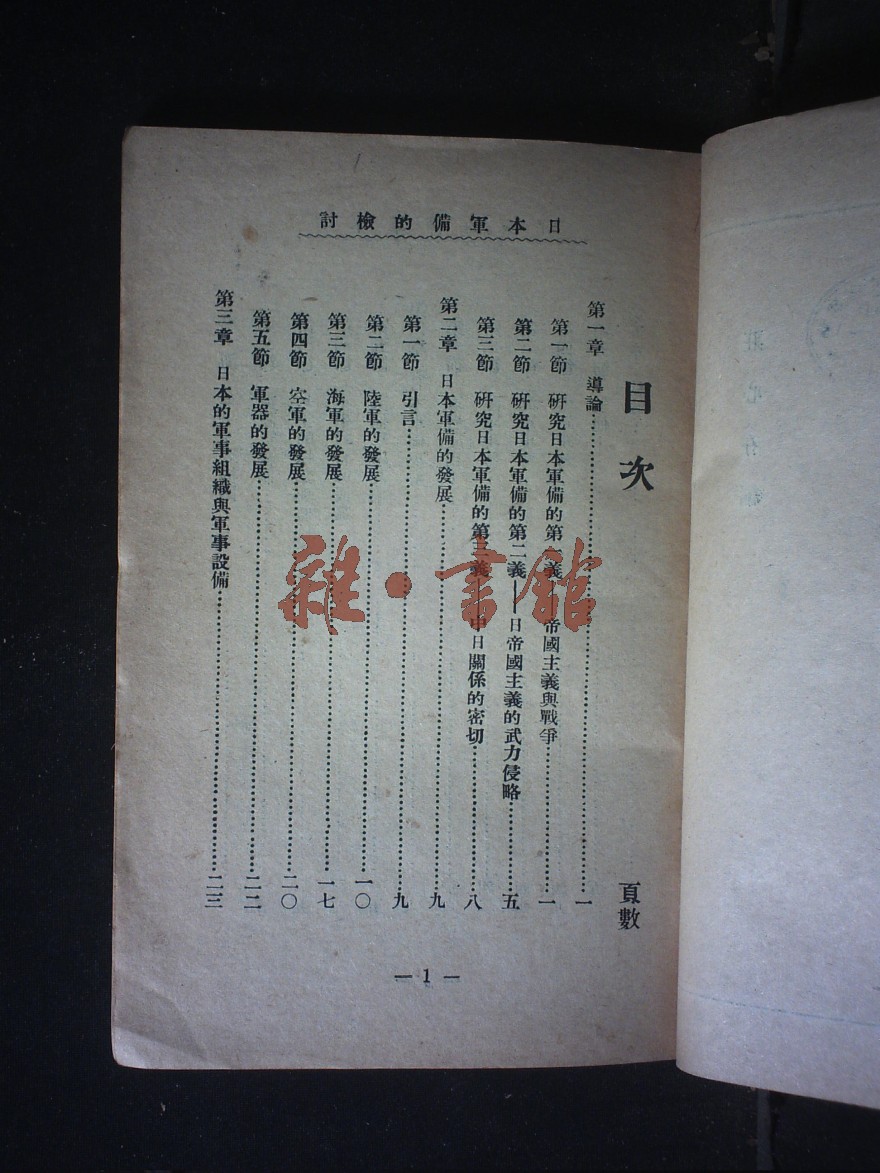 日本軍備的檢討
目次
頁數
第一章 導論……一
第一節 研究日本軍備的第一義——帝國主義與戰爭……一
第二節 研究日本軍備的第二義——日帝國主義的武力侵略……五
第三節 研究日本軍備的第三義——中日關係的密切……八
第二章 日本軍備的發展……九
第一節 引言……九
第二節 陸軍的發展……一〇
第三節 海軍的發展……一七
第四節 空軍的發展……二〇
第五節 軍器的發展……二二
第三章 日本的軍事組織與軍事設備……二三
— 1 —
雜·書館